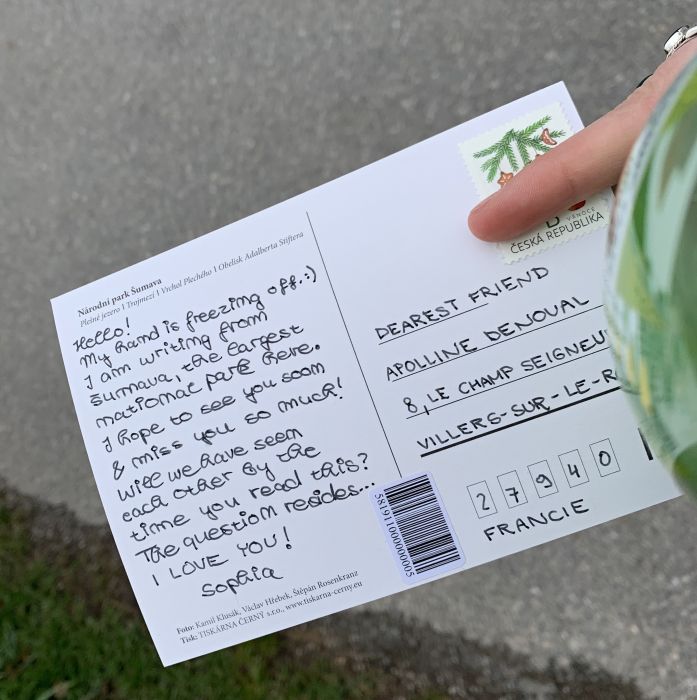 Národní park Šumava
Plešné jezero I Trojmezí I Vrchol Plechého I Obelisk Adalberta Stiftera
Hello!
My hand is freezing off. :)
I am writing from
Šumava, the largest
national park here.
I hope to see you soon
& miss you so much!
Will we have seen
each other by the
time you read this?
The question resides...
I LOVE YOU!
Sophia
Foto: Kamil Klusák, Václav Hřebek, Štěpán Rosenkranz
Tisk: TISKÁRNA ČERNÝ s.r.o., www.tiskarna-cerny.eu
VÁNOCE
ČESKÁ REPUBLIKA
DEAREST FRIEND
APOLLINE DENOUAL
8, LE CHAMP SEIGNEU
VILLERS-SUR-LE-R
27940
FRANCIE
5819110000005